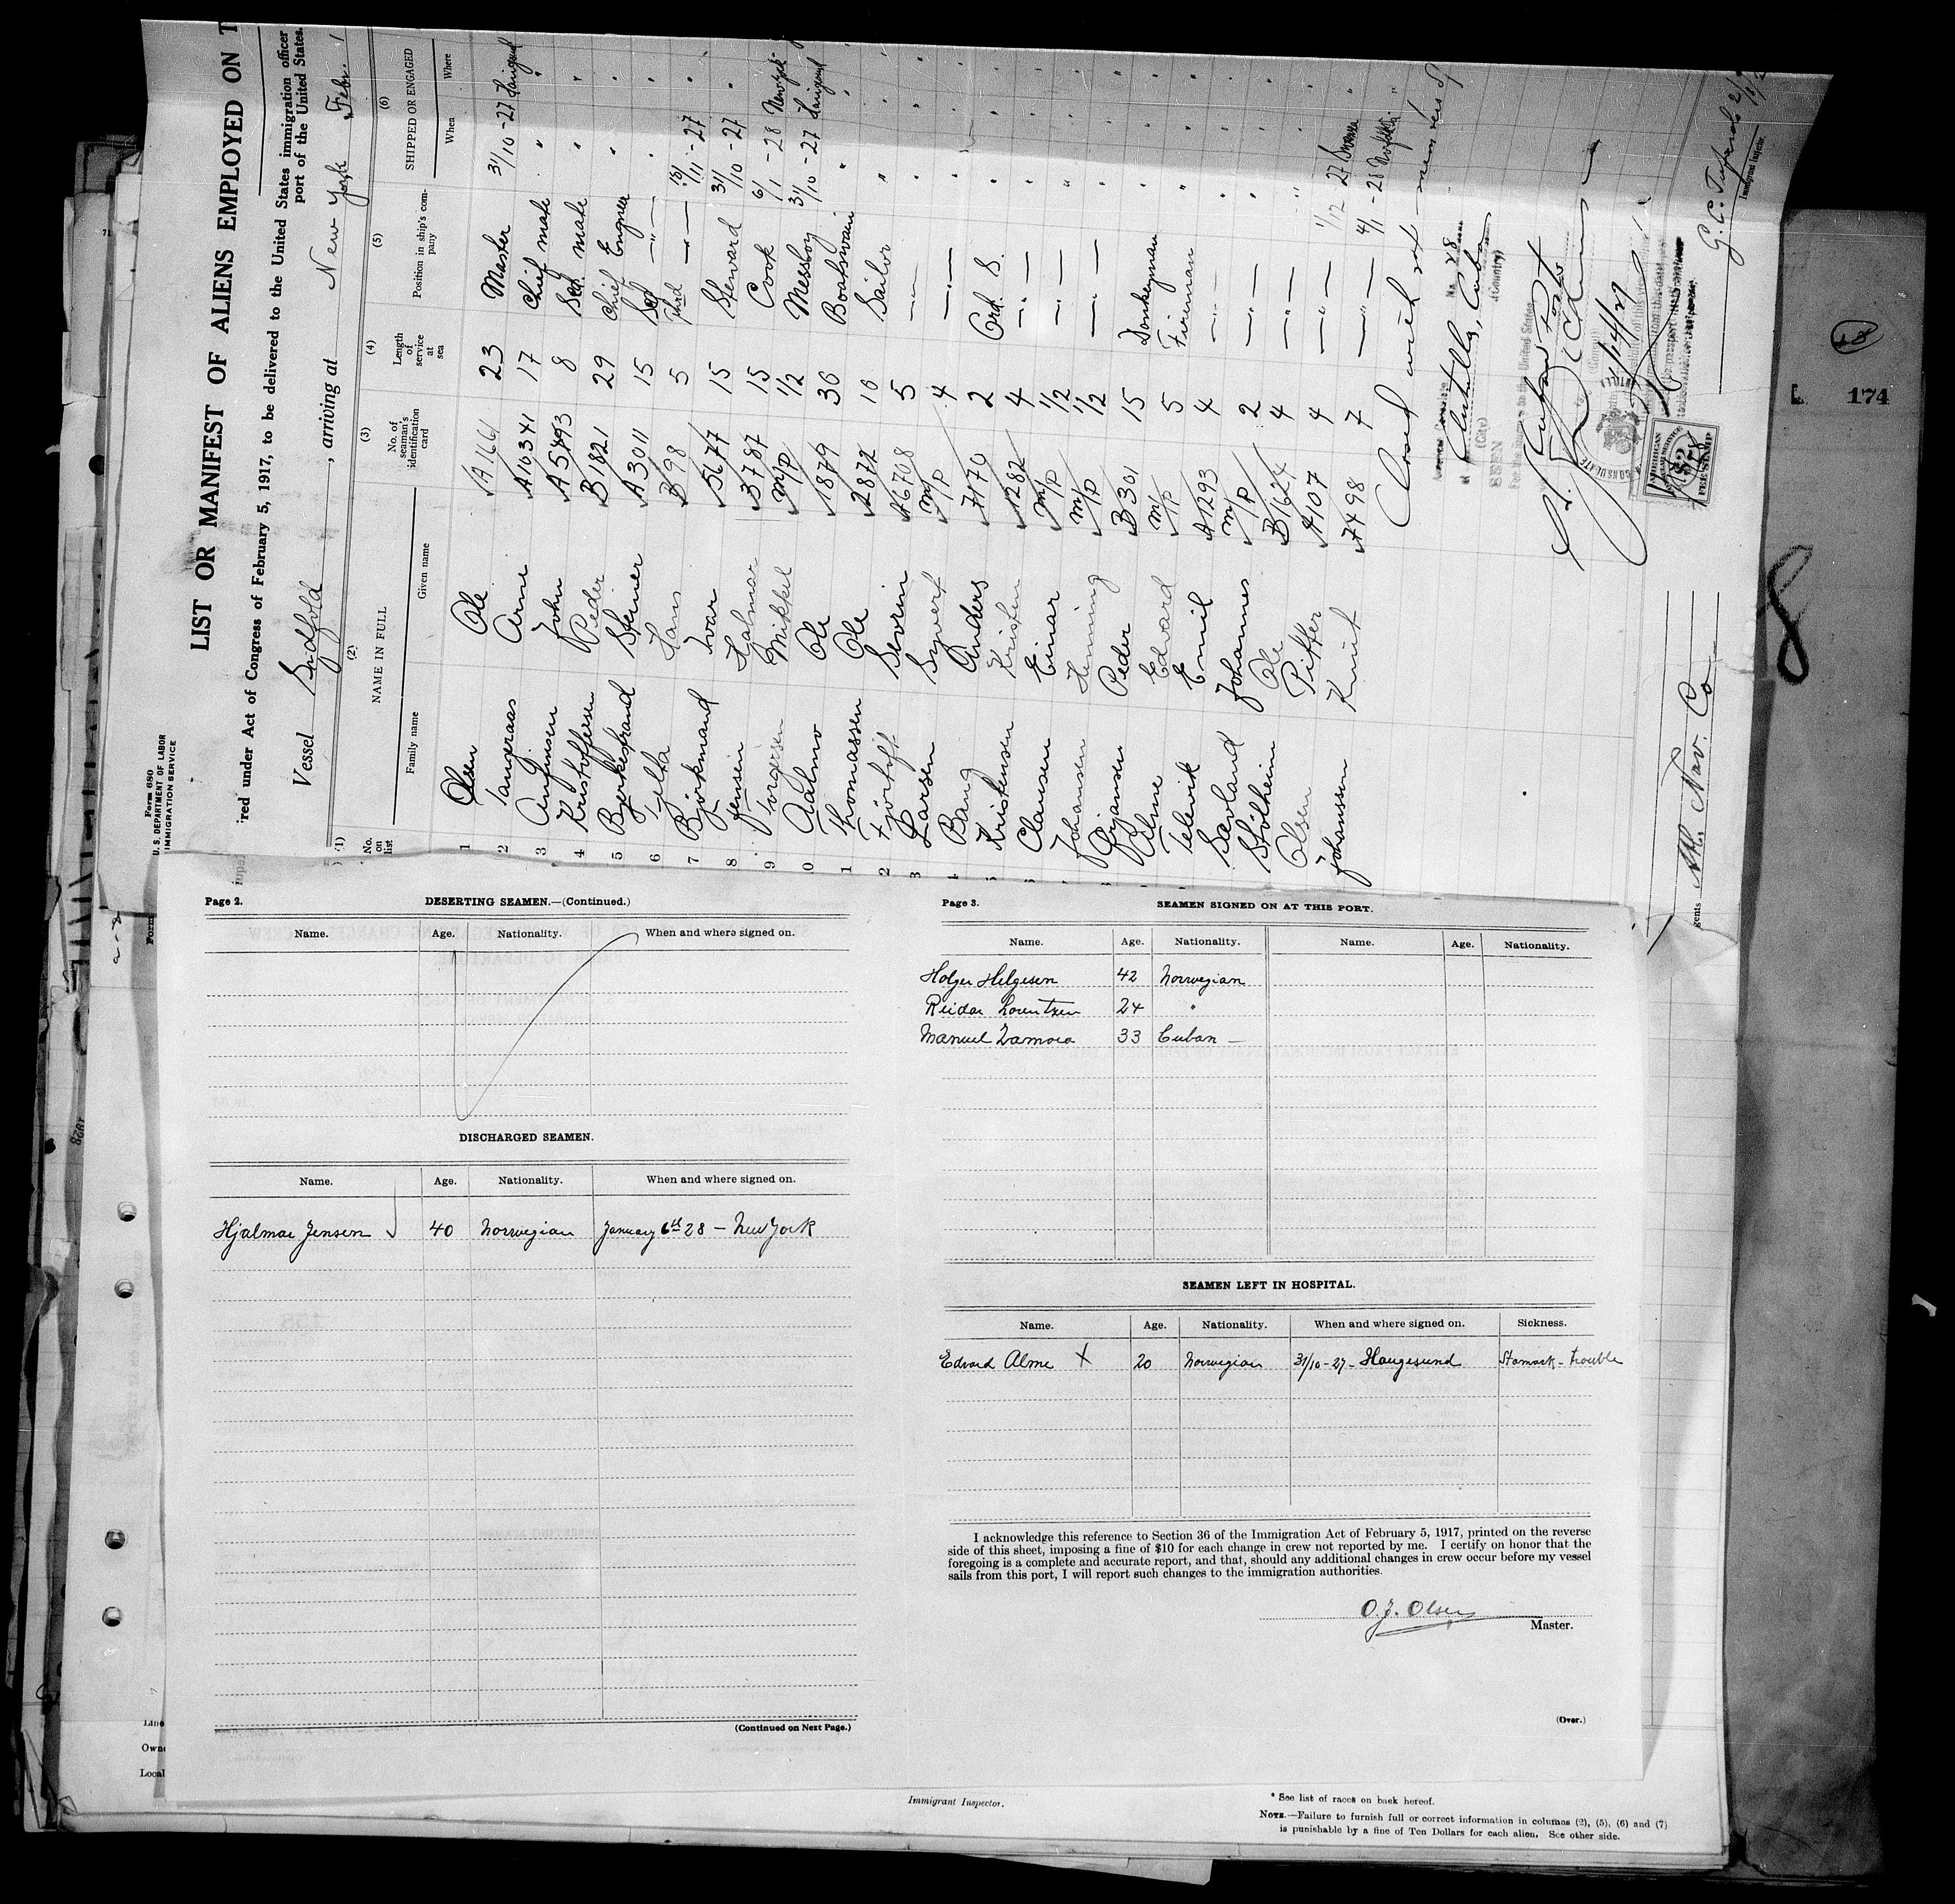 Form 680
U. S. DEPARTMENT OF LABOR
IMMIGRATION SERVICE
LIST OR MANIFEST OF ALIENS EMPLOYED ON T
red under Act of Congress of February 5, 1917, to be delivered to the United States immigration officer
port of the United States.
Vessel Sydfold, arriving at New York Febr. 1
(1) (2) (3) (4) (5) (6)
No. on list NAME IN FULL No. of seaman's identification card Length of service at sea Position in ship's company SHIPPED OR ENGAGED
Family name Given name When Where
1 Olsen Ole A1661 23 Master 31/10-27
2 Tangeraas Arne A10341 17 Chief mate "
3 John A5493 8 Sed. mate "
4 Kristoffersen Peder B1821 29 Chief Engneer "
5 Bjerkestrand Steiner A3011 15 Sed —"— "
6 Tjelta Hans B98 5 Third —"—
7 Bjorkmand Ivar 5677 15 Steward 31/10-27 "
8 Jensen Hjalmar 3787 15 Cook 6/1-28 Newyork
9 Torgersen Mikkel m/p 1/2 Messboy 31/10-27
0 Aalmo Ole 1879 36 Boatswain "
1 Thomassen Ole 2872 10 Sailor "
2 Fjortoft Severin A6708 5 —"— "
3 Larsen Syvert m/p 4 —"— "
4 Bang Anders 7170 2 Ord. S. "
Kristensen Kristen 1282 4 —"— "
Clausen Einar m/p 1/2 —"— "
Johansen Henning m/p 1/2 —"— "
Ørjansen Peder B301 15 Donkeyman "
Alme Edvard m/p 5 Fireman "
Televik Emil A1293 4 —"— "
Sævland Johannes m/p 2 —"— "
Stølheim Ole B1624 4 —"— "
Olsen Piffer A107 4 —"— 1/12-27
Johanssen Knut 7498 7 —"— 4/1-28 Norfolk
Closed with
Antilla, Cuba
(City) (Country)
SEEN
AMERICAN
$2
FEE STAMP
Immigrant Inspector.
Nav. Co.
8
174
Page 2. DESERTING SEAMEN.—(Continued.)
Name. Age. Nationality. When and where signed on.
DISCHARGED SEAMEN.
Name. Age. Nationality. When and where signed on.
Hjalmar Jensen 40 Norwegian January 6th 28 — New York
(Continued on Next Page.)
Page 3. SEAMEN SIGNED ON AT THIS PORT.
Name. Age. Nationality. Name. Age. Nationality.
Holger Helgesen 42 Norwegian
Reidar Lorentzen 24 "
Manuel Zamora 33 Cuban —
SEAMEN LEFT IN HOSPITAL.
Name. Age. Nationality. When and where signed on. Sickness.
Edvard Alme X 20 Norwegian 31/10-27- Haugesund Stomack-trouble
I acknowledge this reference to Section 36 of the Immigration Act of February 5, 1917, printed on the reverse
side of this sheet, imposing a fine of $10 for each change in crew not reported by me. I certify on honor that the
foregoing is a complete and accurate report, and that, should any additional changes in crew occur before my vessel
sails from this port, I will report such changes to the immigration authorities.
O.J. Olsen
Master.
(Over.)
Line
Owne
Local
Immigrant Inspector.
* See list of races on back hereof.
NOTE.—Failure to furnish full or correct information in columns (2), (5), (6) and (7)
is punishable by a fine of Ten Dollars for each alien. See other side.